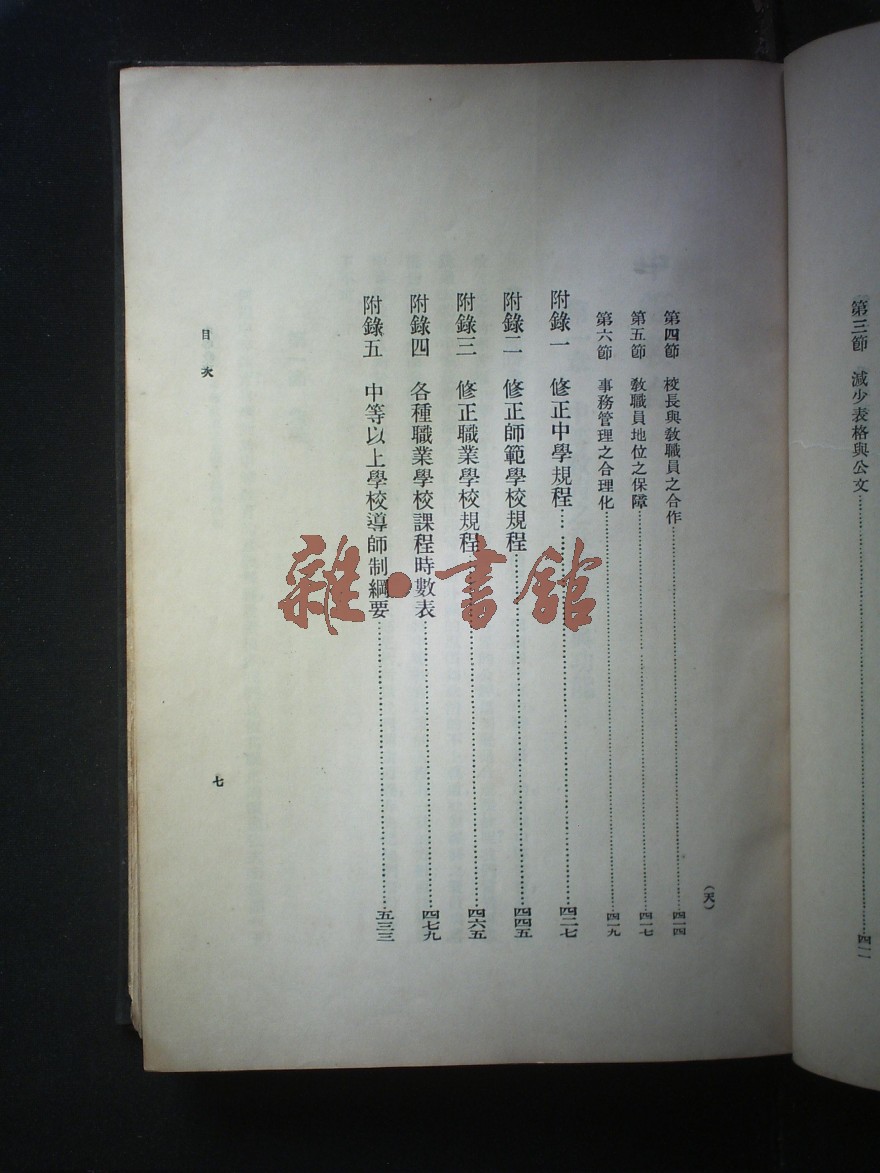 第三節　減少表格與公文……四一一
(天)
第四節　校長與教職員之合作……四一四
第五節　教職員地位之保障……四一七
第六節　事務管理之合理化……四一九
附錄一　修正中學規程……四二七
附錄二　修正師範學校規程……四四五
附錄三　修正職業學校規程……四六五
附錄四　各種職業學校課程時數表……四七九
附錄五　中等以上學校導師制綱要……五三三
目次
七
雜·書館